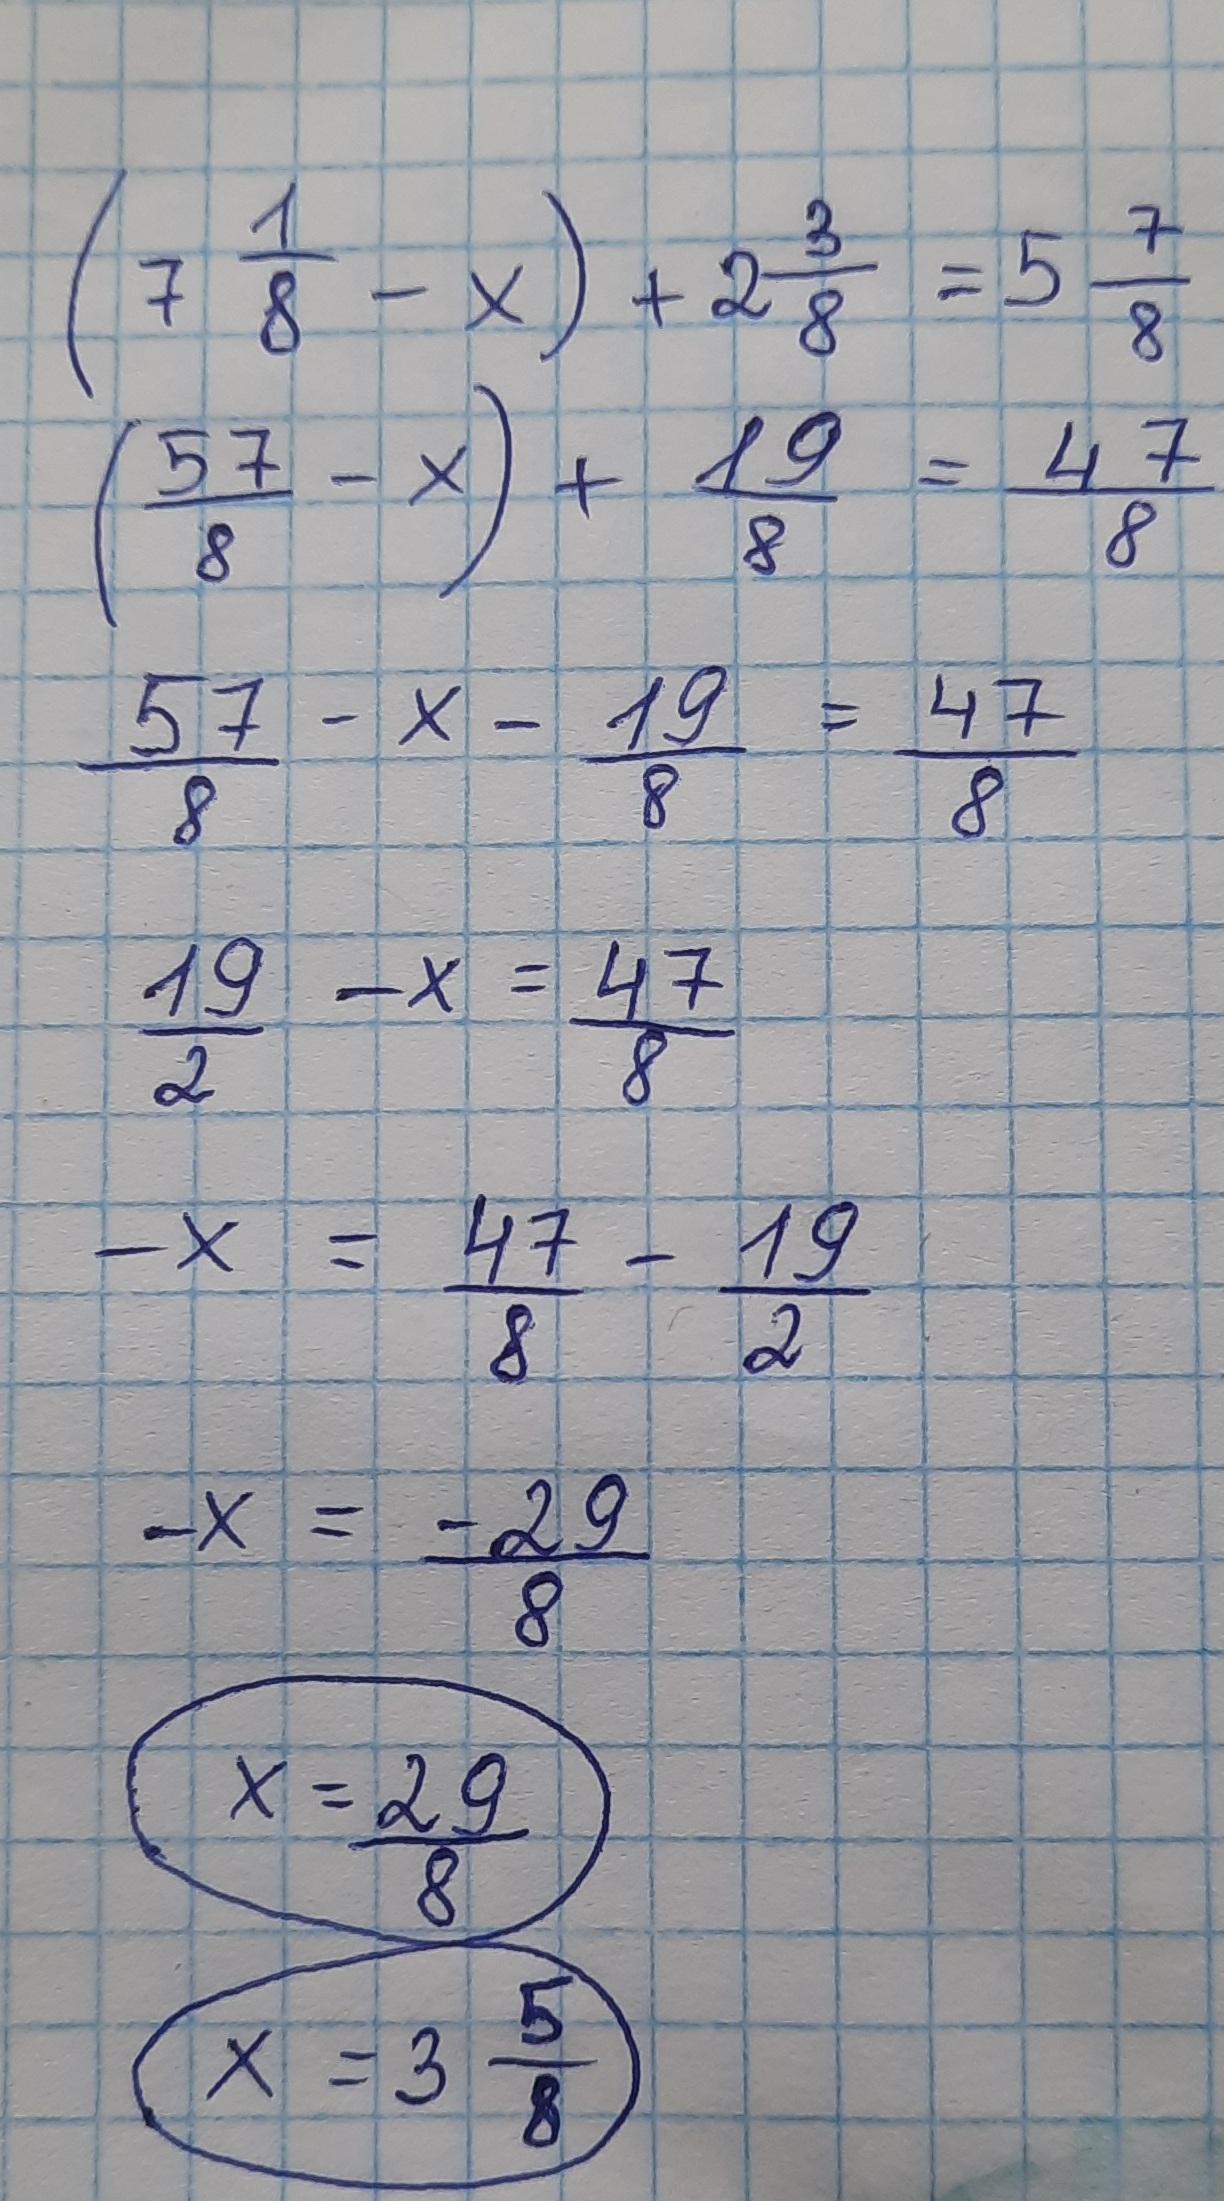 (7 1/8 - x) + 2 3/8 = 5 7/8
(57/8 - x) + 19/8 = 47/8
57/8 - x - 19/8 = 47/8
19/2 - x = 47/8
-x = 47/8 - 19/2
-x = -29/8
x = 29/8
x = 3 5/8